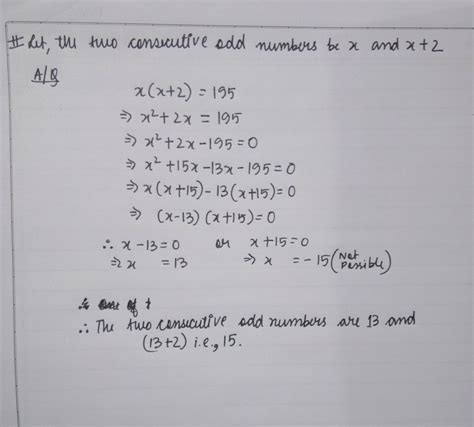 # Let, the two consecutive odd numbers be x and x+2
A/Q
x(x+2) = 195
⇒ x² + 2x = 195
⇒ x² + 2x - 195 = 0
⇒ x² + 15x - 13x - 195 = 0
⇒ x(x+15) - 13(x+15) = 0
⇒ (x-13) (x+15) = 0
∴ x - 13 = 0 or x + 15 = 0
⇒ x = 13 ⇒ x = - 15 (Not Possible)
∴ The two consecutive odd numbers are 13 and
(13+2) i.e., 15.